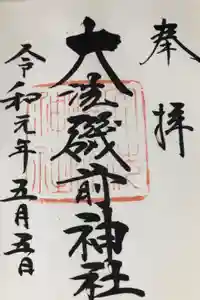 奉拝
大洗磯前神社
令和元年五月五日